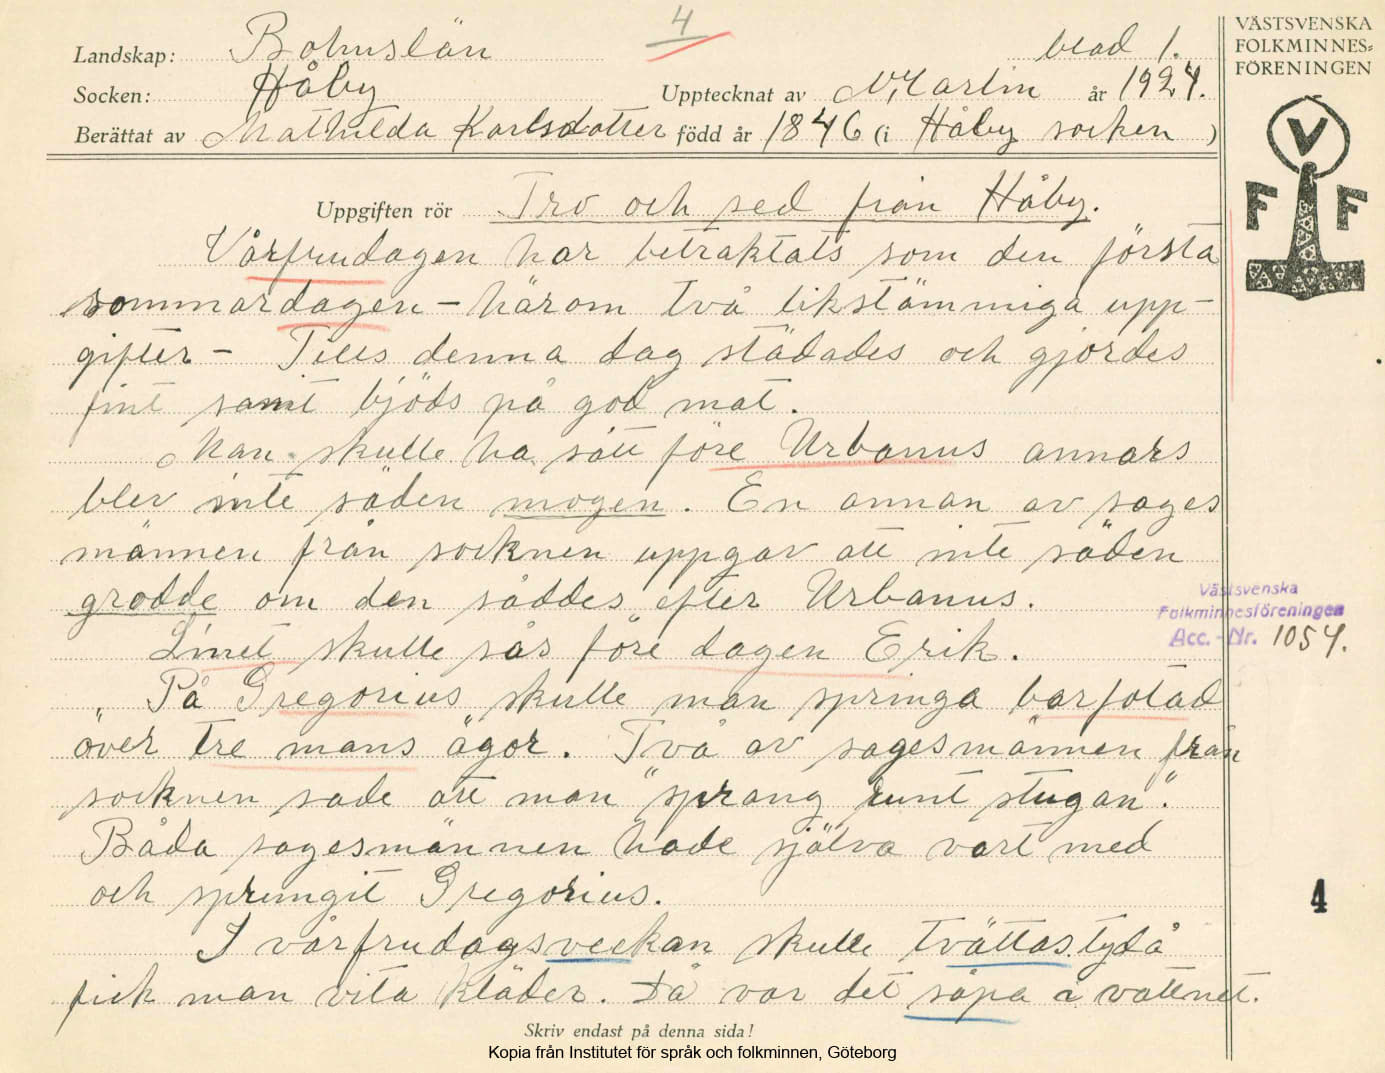 4
Landskap: Bohuslän blad 1.
Socken: Håby Upptecknat av N. Karlin år 1924.
Berättat av Mathilda Karlsdotter född år 1846 (i Håby socken )
VÄSTSVENSKA
FOLKMINNES=
FÖRENINGEN
V
F F
Uppgiften rör Tro och sed från Håby.
Vårfrudagen har betraktats som den första
sommardagen – härom två likstämmiga upp-
gifter – Tills denna dag städades och gjordes
fint samt bjöds på god mat.
Man skulle ha sått före Urbanus annars
blev inte säden mogen. En annan av sages
männen från socknen uppgav att inte säden
grodde om den såddes efter Urbanus.
Västsvenska
Folkminnesföreningen
Acc.-Nr. 1054.
Linet skulle sås före dagen Erik.
På Gregorius skulle man springa barfotad
över tre mans ägor. Två av sagesmännen från
socknen sade att man "sprang runt stugan".
Båda sagesmännen hade själva vart med
och sprungit Gregorius.
4
I vårfrudagsveckan skulle tvättas, ty då
fick man vita kläder. Då var det såpa i vattnet.
Skriv endast på denna sida!
Kopia från Institutet för språk och folkminnen, Göteborg